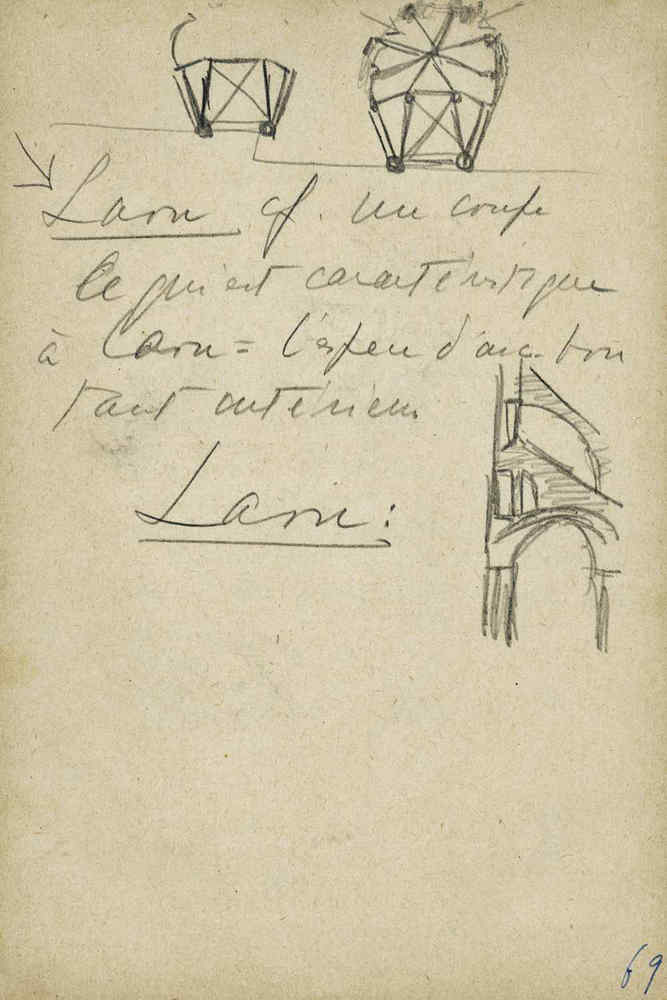 Laon cf. une coupe
Ce qui est caractéristique
à Laon = l'espèce d'arc-bou
tant intérieur
Laon :
69